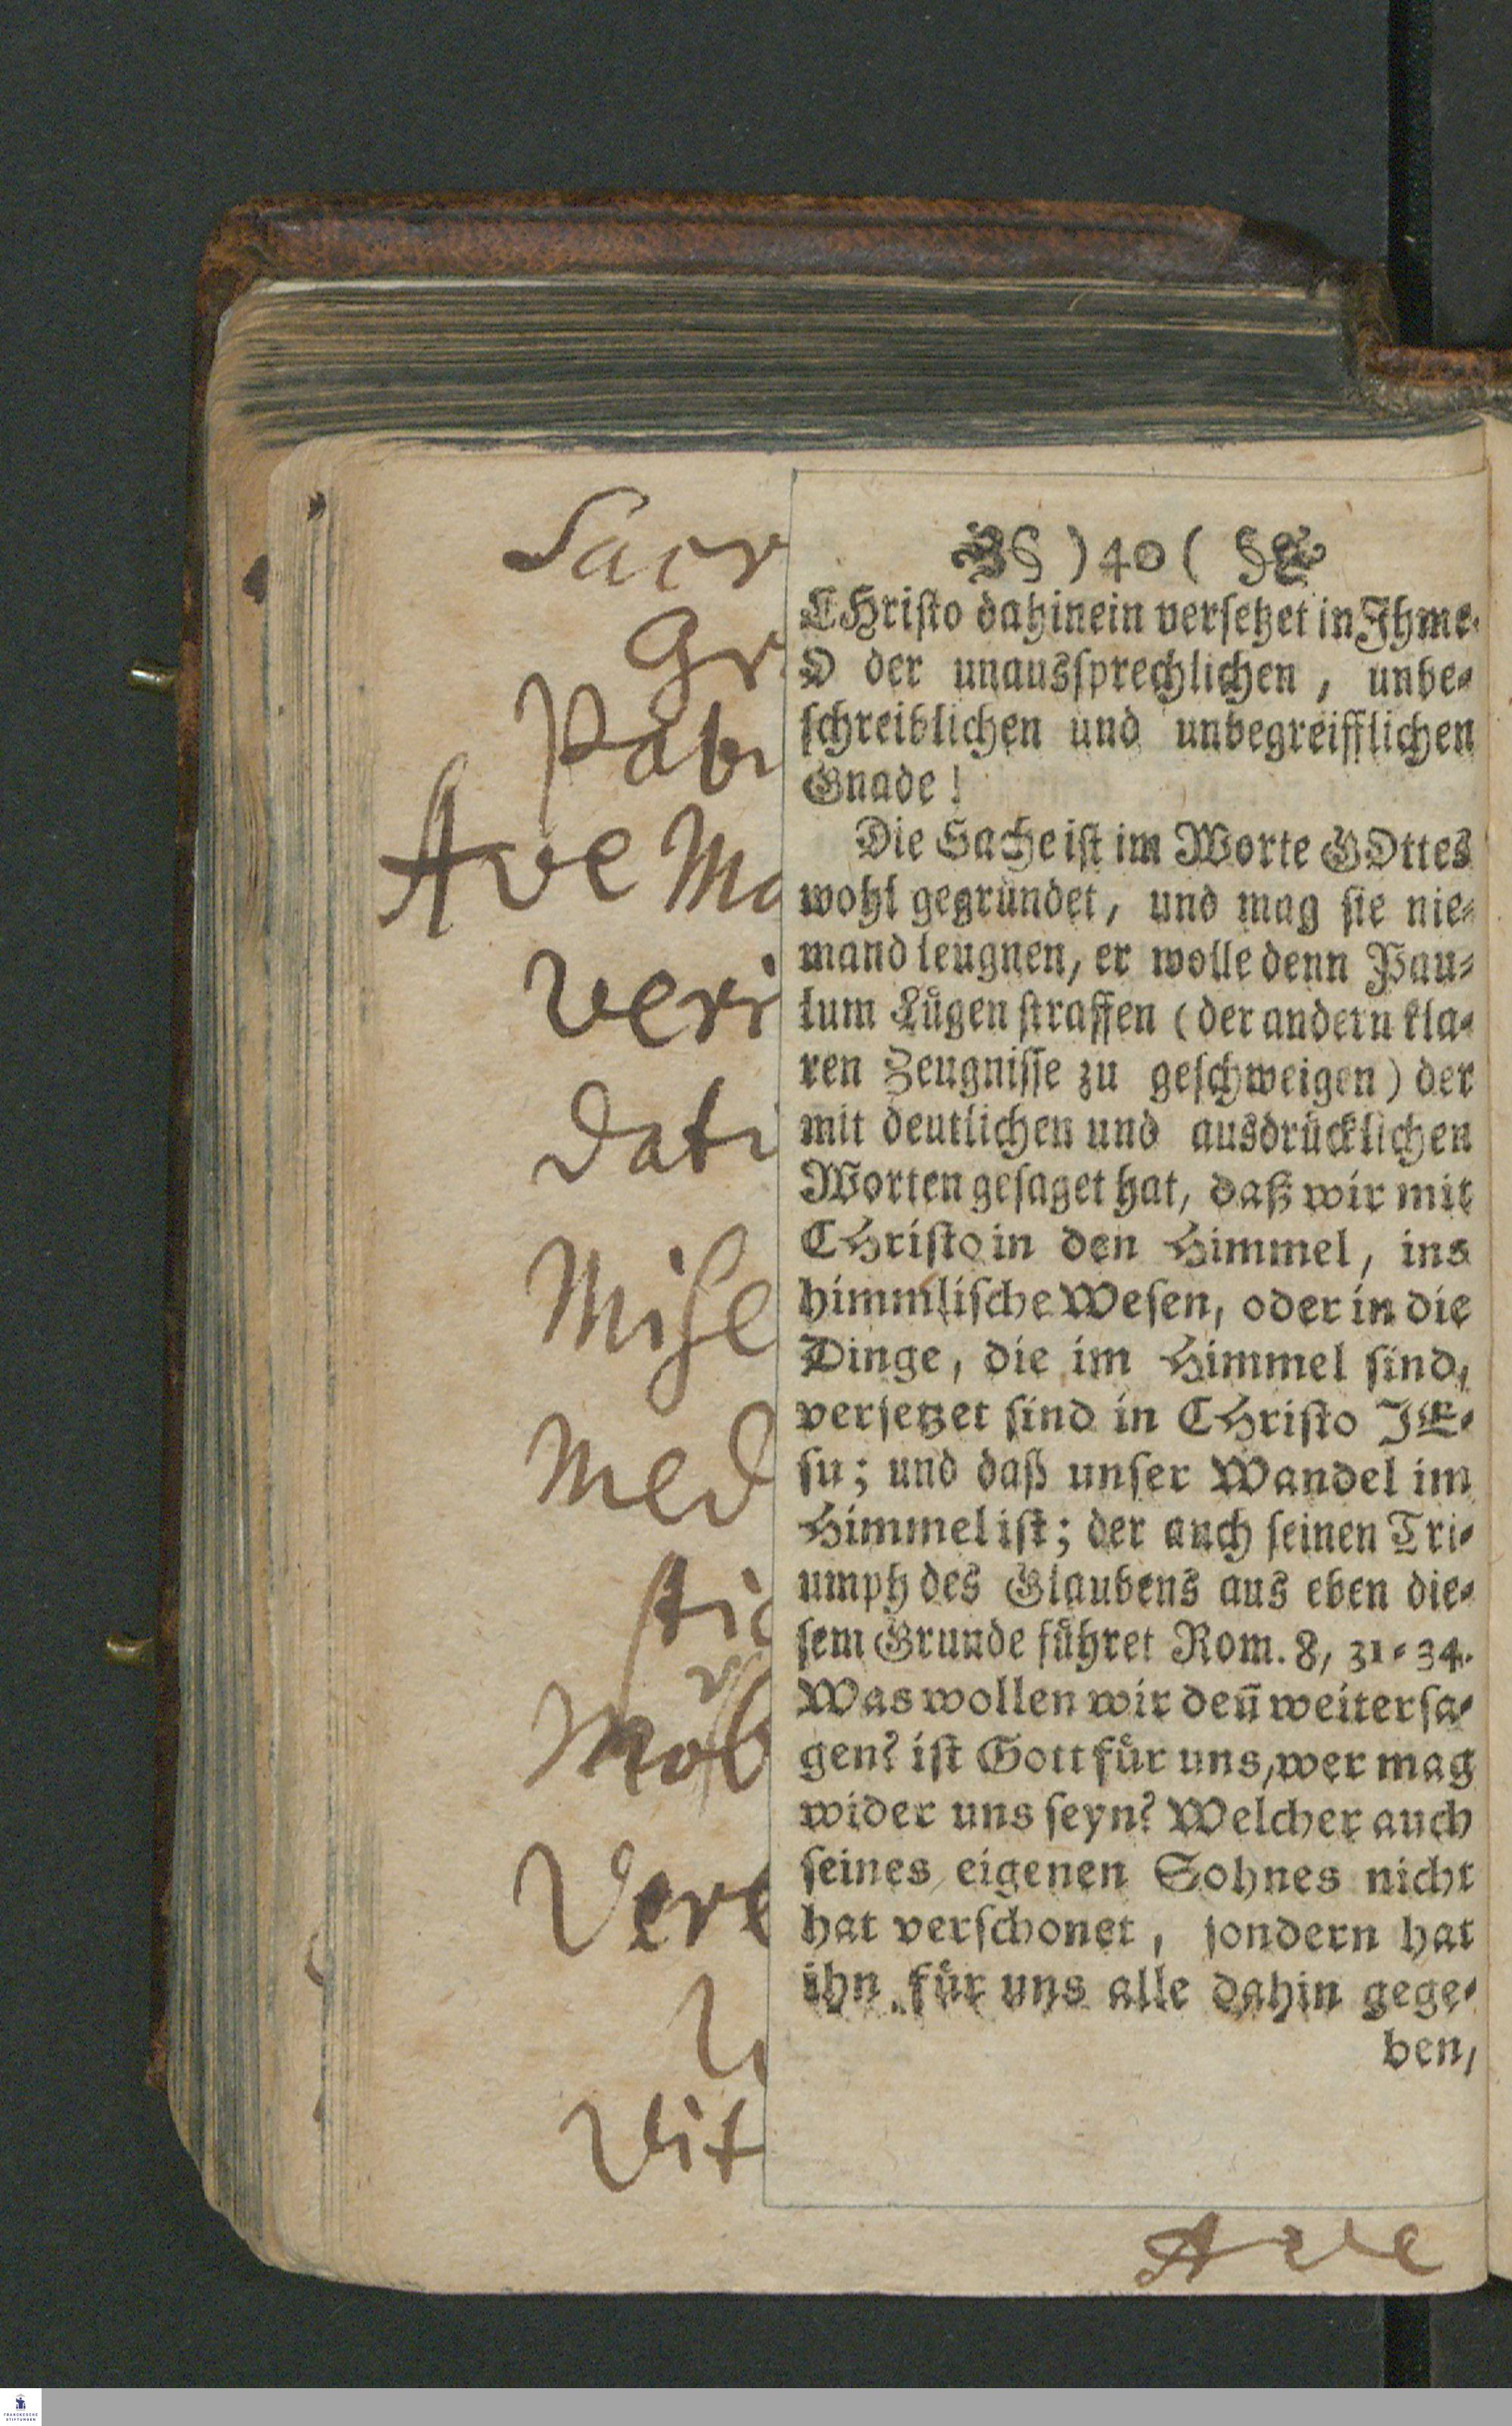 ) 40 (
CHristo dahinein versetzet in Ihme.
O der unaussprechlichen, unbe-
schreiblichen und unbegreifflichen
Gnade!
Die Sache ist im Worte GOttes
wohl gegründet, und mag sie nie-
mand leugnen, er wolle denn Pau-
lum Lügen straffen (der andern kla-
ren Zeugnisse zu geschweigen) der
mit deutlichen und ausdrücklichen
Worten gesaget hat, daß wir mit
CHristo in den Himmel, ins
himmlische Wesen, oder in die
Dinge, die im Himmel sind,
versetzet sind in CHristo JE-
su; und daß unser Wandel im
Himmel ist; der auch seinen Tri-
umph des Glaubens aus eben die-
sem Grunde führet Rom. 8, 31-34.
Was wollen wir deñ weiter sa-
gen? ist Gott für uns, wer mag
wider uns seyn? Welcher auch
seines eigenen Sohnes nicht
hat verschonet, sondern hat
ihn für uns alle dahin gege-
ben,
Sacr
Gr
Pabi
Ave Ma
Veri
Dati
Mise
Med
stic
Vere
Vit
Ave